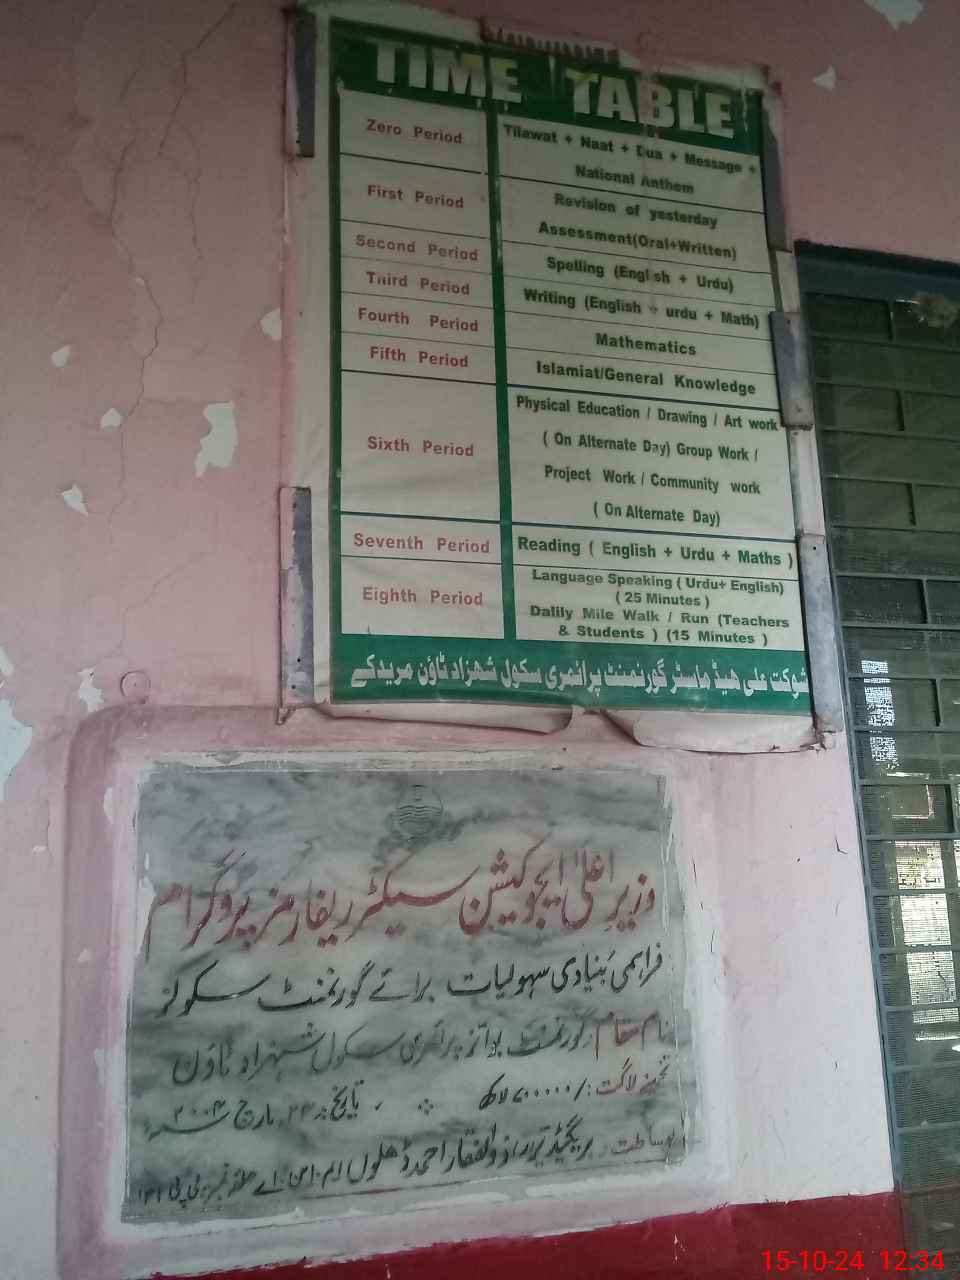 TIME TABLE
Zero Period
Tilawat + Naat + Dua + Message +
National Anthem
First Period
Revision of yesterday
Assessment(Oral+Written)
Second Period
Spelling (English + Urdu)
Third Period
Writing (English + urdu + Math)
Fourth Period
Mathematics
Fifth Period
Islamiat/General Knowledge
Sixth Period
Physical Education / Drawing / Art work
( On Alternate Day) Group Work /
Project Work / Community work
( On Alternate Day)
Seventh Period
Reading ( English + Urdu + Maths )
Eighth Period
Language Speaking ( Urdu+ English)
( 25 Minutes )
Dalily Mile Walk / Run (Teachers
& Students ) (15 Minutes )
شوکت علی ھیڈ ماسٹر گورنمنٹ پرائمری سکول شھزاد ٹاؤن مریدکے
وزیر اعلیٰ ایجوکیشن سیکٹر ریفارمز پروگرام
فراہمی بنیادی سہولیات برائے گورنمنٹ سکولز
نام مقام گورنمنٹ بوائز پرائمری سکول شہزاد ٹاؤن
تخمینہ لاگت : لاکھ تاریخ : ۲۳ مارچ ۲۰۰۴ء
بریگیڈیئر ذوالفقار احمد ڈھلوں ایم این اے حلقہ نمبر
15-10-24 12:34